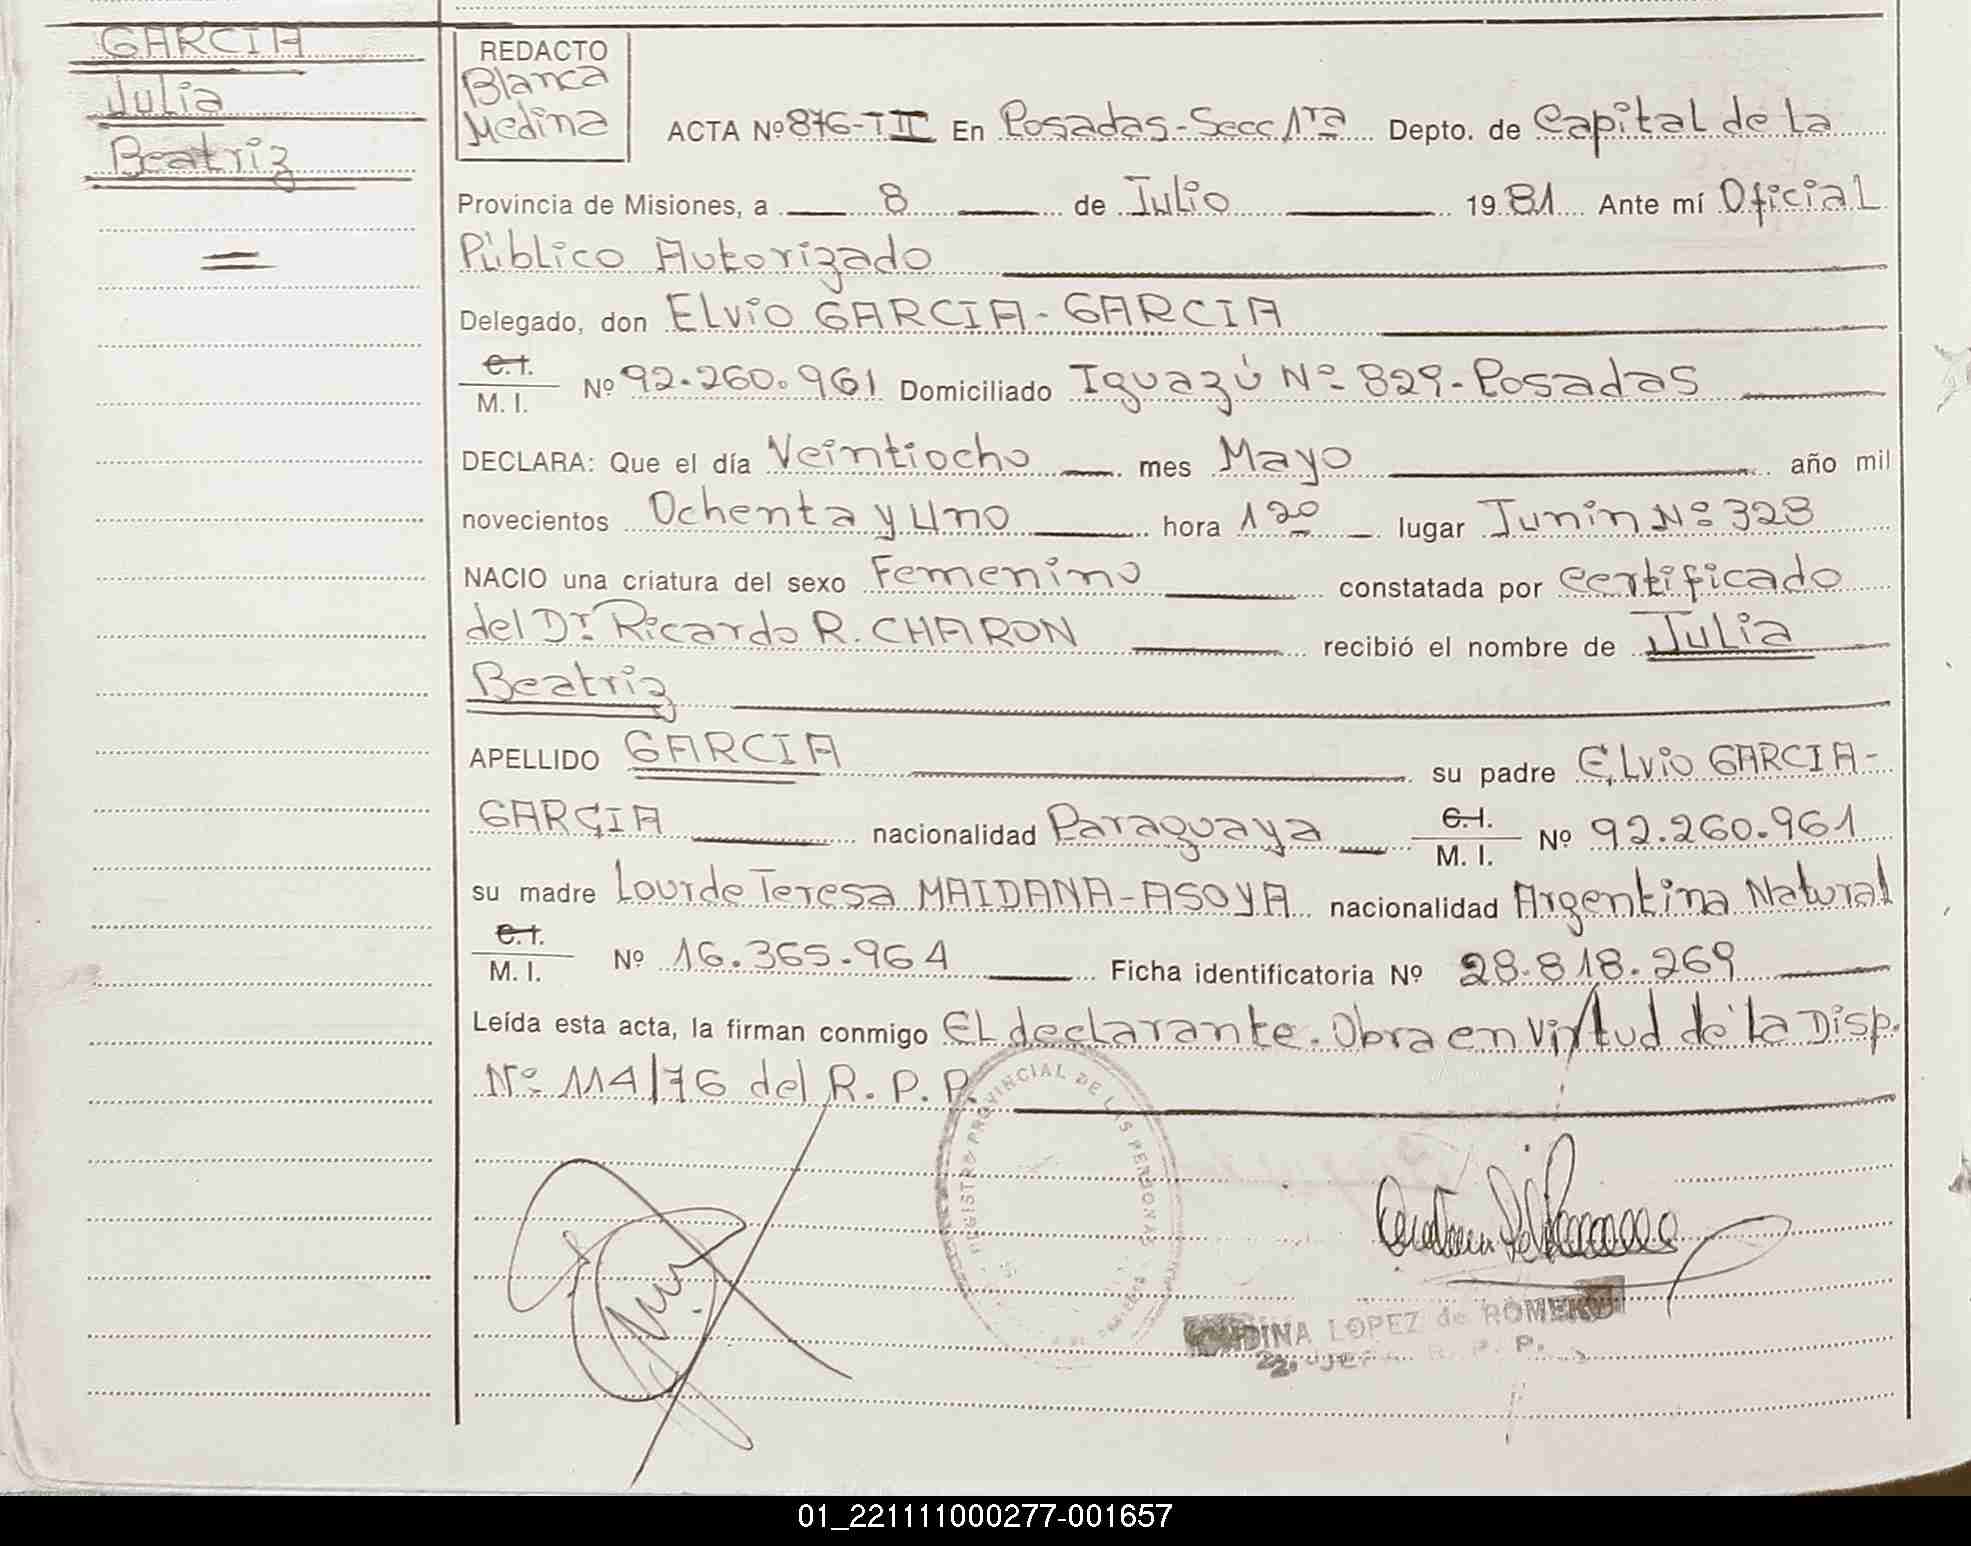 GARCIA
Julia
Beatriz
REDACTO
Blanca
Medina
ACTA Nº 876-TII En Posadas-Secc 1ra Depto. de Capital de la
Provincia de Misiones, a 8 de Julio 1981 Ante mí Oficial
Público Autorizado
Delegado, don Elvio GARCIA-GARCIA
C.I.
M. I. Nº 92.260.961 Domiciliado Iguazú Nº 829-Posadas
DECLARA: Que el día Veintiocho mes Mayo año mil
novecientos Ochenta y Uno hora 1 20 lugar Junin Nº 328
NACIO una criatura del sexo Femenino constatada por certificado
del Dr. Ricardo R. CHARON recibió el nombre de Julia
Beatriz
APELLIDO GARCIA su padre Elvio GARCIA-
GARCIA nacionalidad Paraguaya C.I. M. I. Nº 92.260.961
su madre Lourde Teresa MAIDANA-ASOYA nacionalidad Argentina Natural
C.I.
M. I. Nº 16.365.964 Ficha identificatoria Nº 28.818.269
Leída esta acta, la firman conmigo El declarante. Obra en virtud de la Disp.
Nº 114/76 del R. P. P.
REGISTRO PROVINCIAL DE LAS PERSONAS
LOPEZ de ROMERO
01_221111000277-001657